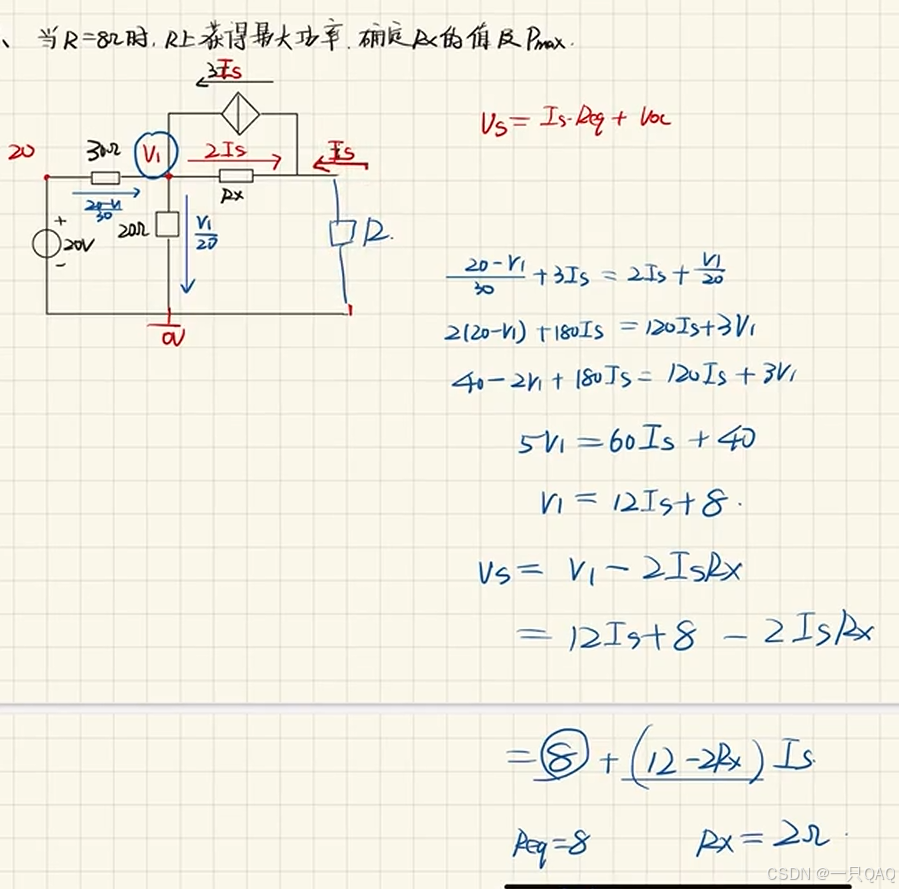 、当R=8Ω时,R上获得最大功率.确定Rx的值及Pmax.
3Is
Us = Is·Req + Uoc
20
30Ω
V1
2Is
Is
Rx
20-V1/30
+
20V
-
20Ω
V1/20
R.
0V
20-V1/30 + 3Is = 2Is + V1/20
2(20-V1) + 180Is = 120Is + 3V1
40 - 2V1 + 180Is = 120Is + 3V1
5V1 = 60Is + 40
V1 = 12Is + 8.
Us = V1 - 2IsRx
= 12Is + 8 - 2IsRx
= 8 + (12 - 2Rx) Is
Req = 8 Rx = 2Ω.
CSDN @一只QAQ